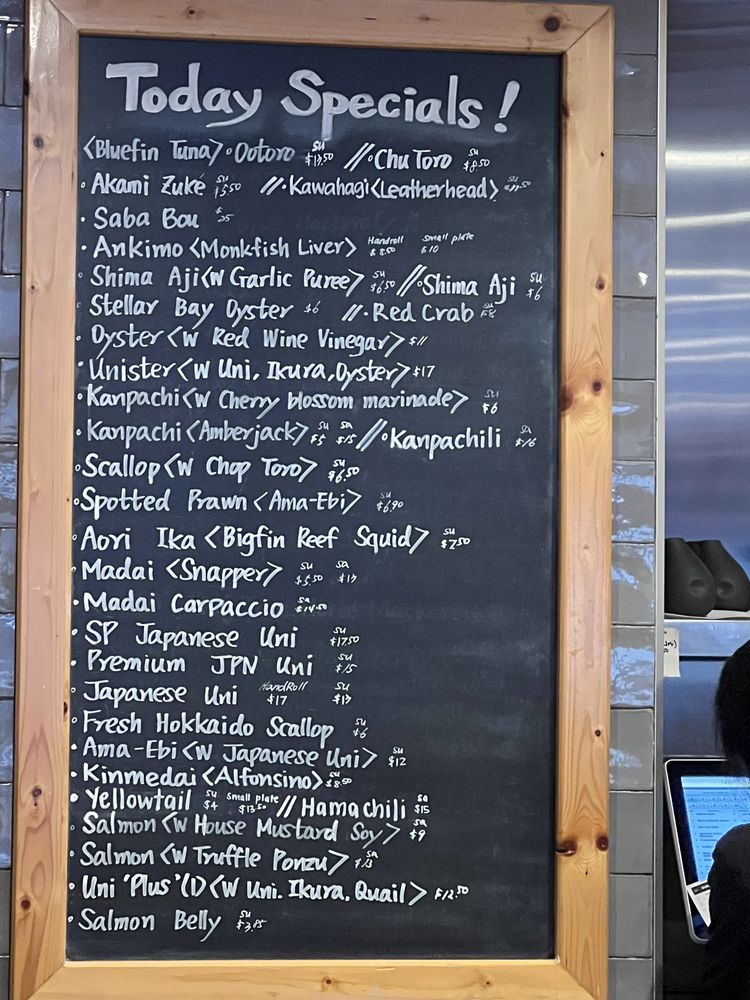 Today Specials!
<Bluefin Tuna> • Ootoro su // • Chu Toro su $8.50
• Akami Zuke su $5.50 // • Kawahagi <Leatherhead> su
• Saba Bou $25
• Ankimo <Monkfish Liver> Handroll $8.50 Small plate $10
• Shima Aji <W Garlic Puree> su $6.50 // • Shima Aji su $6
• Stellar Bay Oyster $6 // • Red Crab su $8
• Oyster <W Red Wine Vinegar> $11
• Unister <W Uni, Ikura, Oyster> $17
• Kanpachi <W Cherry blossom marinade> su $6
• Kanpachi <Amberjack> su $5 sa $15 // • Kanpachili sa $16
• Scallop <W Chop Toro> su $6.50
• Spotted Prawn <Ama-Ebi> su $6.90
• Aori Ika <Bigfin Reef Squid> su $7.50
• Madai <Snapper> su $5.50 sa
• Madai Carpaccio sa $14.50
• SP Japanese Uni su $17.50
• Premium JPN Uni su $15
• Japanese Uni HandRoll $17 su $13
• Fresh Hokkaido Scallop su $6
• Ama-Ebi <W Japanese Uni> su $12
• Kinmedai <Alfonsino> su $8.50
• Yellowtail su $4 Small plate $13.50 // Hamachili sa $15
• Salmon <W House Mustard Soy> sa $9
• Salmon <W Truffle Ponzu> sa $13
• Uni 'Plus' (1) <W Uni. Ikura. Quail> $12.50
• Salmon Belly su $3.85